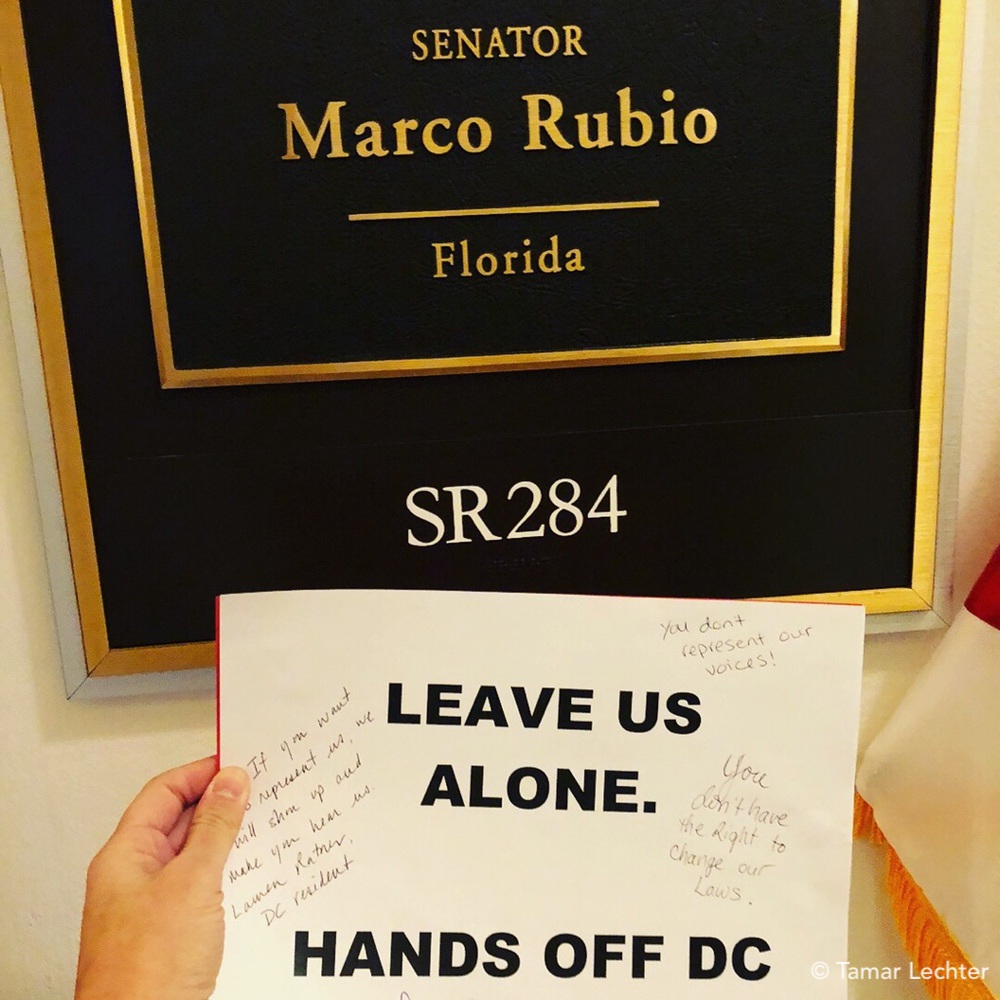 SENATOR
Marco Rubio
Florida
SR 284
You don't
represent our
voices!
LEAVE US
ALONE.
HANDS OFF DC
If you want
to represent us, we
will show up and
make you hear us.
Lauren Ratner,
DC resident
You
don't have
the Right to
change our
Laws.
© Tamar Lechter